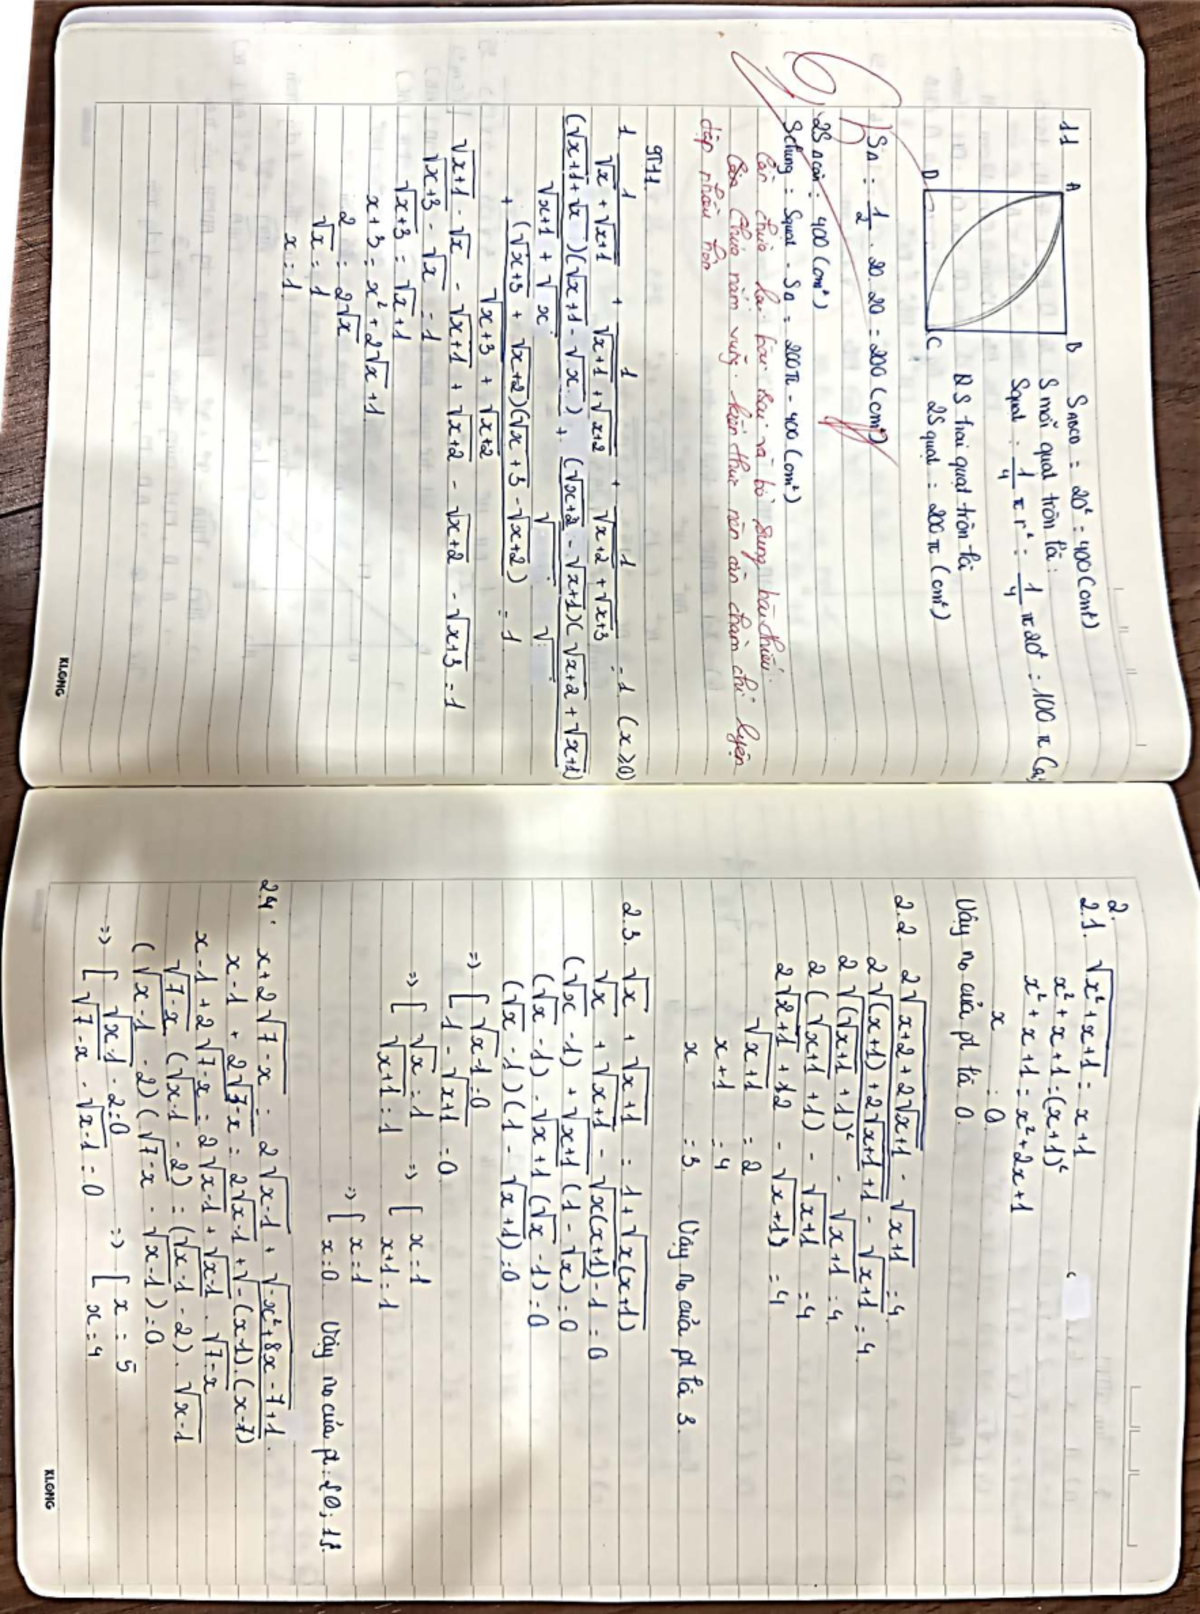 11
A
B
D
C
S ABCD = 20² = 400 (cm²)
S mỗi quạt tròn là:
Squạt = 1/4 π r² = 1/4 π 20² = 100 π
2 S hai quạt tròn là
2S quạt = 200 π (cm²)
SΔ = 1/2 . 20 . 20 = 200 (cm²)
2SΔ cân = 400 (cm²)
Schung = Squạt - SΔ = 200π - 400 (cm²)
Cần chữa lại bài sai và bổ sung bài thiếu.
Còn chưa nắm vững kiến thức nên cần chăm chỉ luyện
tập nhiều hơn
BT11
1 1/(√x + √x+1) + 1/(√x+1 + √x+2) + 1/(√x+2 + √x+3) = 1 (x ≥ 0)
(√x+1 + √x)(√x+1 - √x)/(√x+1 + √x) + (√x+2 - √x+1)(√x+2 + √x+1)
+ (√x+3 + √x+2)(√x+3 - √x+2)/(√x+3 + √x+2) = 1
√x+1 - √x - √x+1 + √x+2 - √x+2 - √x+3 = 1
√x+3 - √x = 1
√x+3 = √x + 1
x+3 = x² + 2√x + 1
2 = 2√x
√x = 1
x = 1
KLONG
2.
2.1. √x²+x+1 = x+1
x²+x+1 = (x+1)²
x²+x+1 = x²+2x+1
x = 0
Vậy no của pt là 0.
2.2. 2√x+2+2√x+1 - √x+1 = 4
2√(x+1)+2√x+1+1 - √x+1 = 4
2√(√x+1 +1)² - √x+1 = 4
2(√x+1 +1) - √x+1 = 4
2√x+1 + 2 - √x+1 = 4
√x+1 = 2
x+1 = 4
x = 3 Vậy no của pt là 3.
2.3. √x + √x+1 = 1 + √x(x+1)
√x + √x+1 - √x(x+1) - 1 = 0
(√x - 1) + √x+1 (1 - √x) = 0
(√x - 1) - √x+1 (√x - 1) = 0
(√x - 1)(1 - √x+1) = 0
=> [ √x - 1 = 0
1 - √x+1 = 0
=> [ √x = 1 => [ x = 1
√x+1 = 1 x+1 = 1
=> [ x = 1
x = 0 Vậy no của pt = {0; 1}.
2.4. x + 2√7-x = 2√x-1 + √-x²+8x-7 + 1.
x - 1 + 2√7-x = 2√x-1 + √-(x-1).(x-7)
x - 1 + 2√7-x = 2√x-1 + √x-1 . √7-x
√7-x (√x-1 - 2) = (√x-1 - 2) . √x-1
(√x-1 - 2)(√7-x - √x-1) = 0
=> [ √x-1 - 2 = 0 => [ x = 5
√7-x - √x-1 = 0 x = 4
KLONG